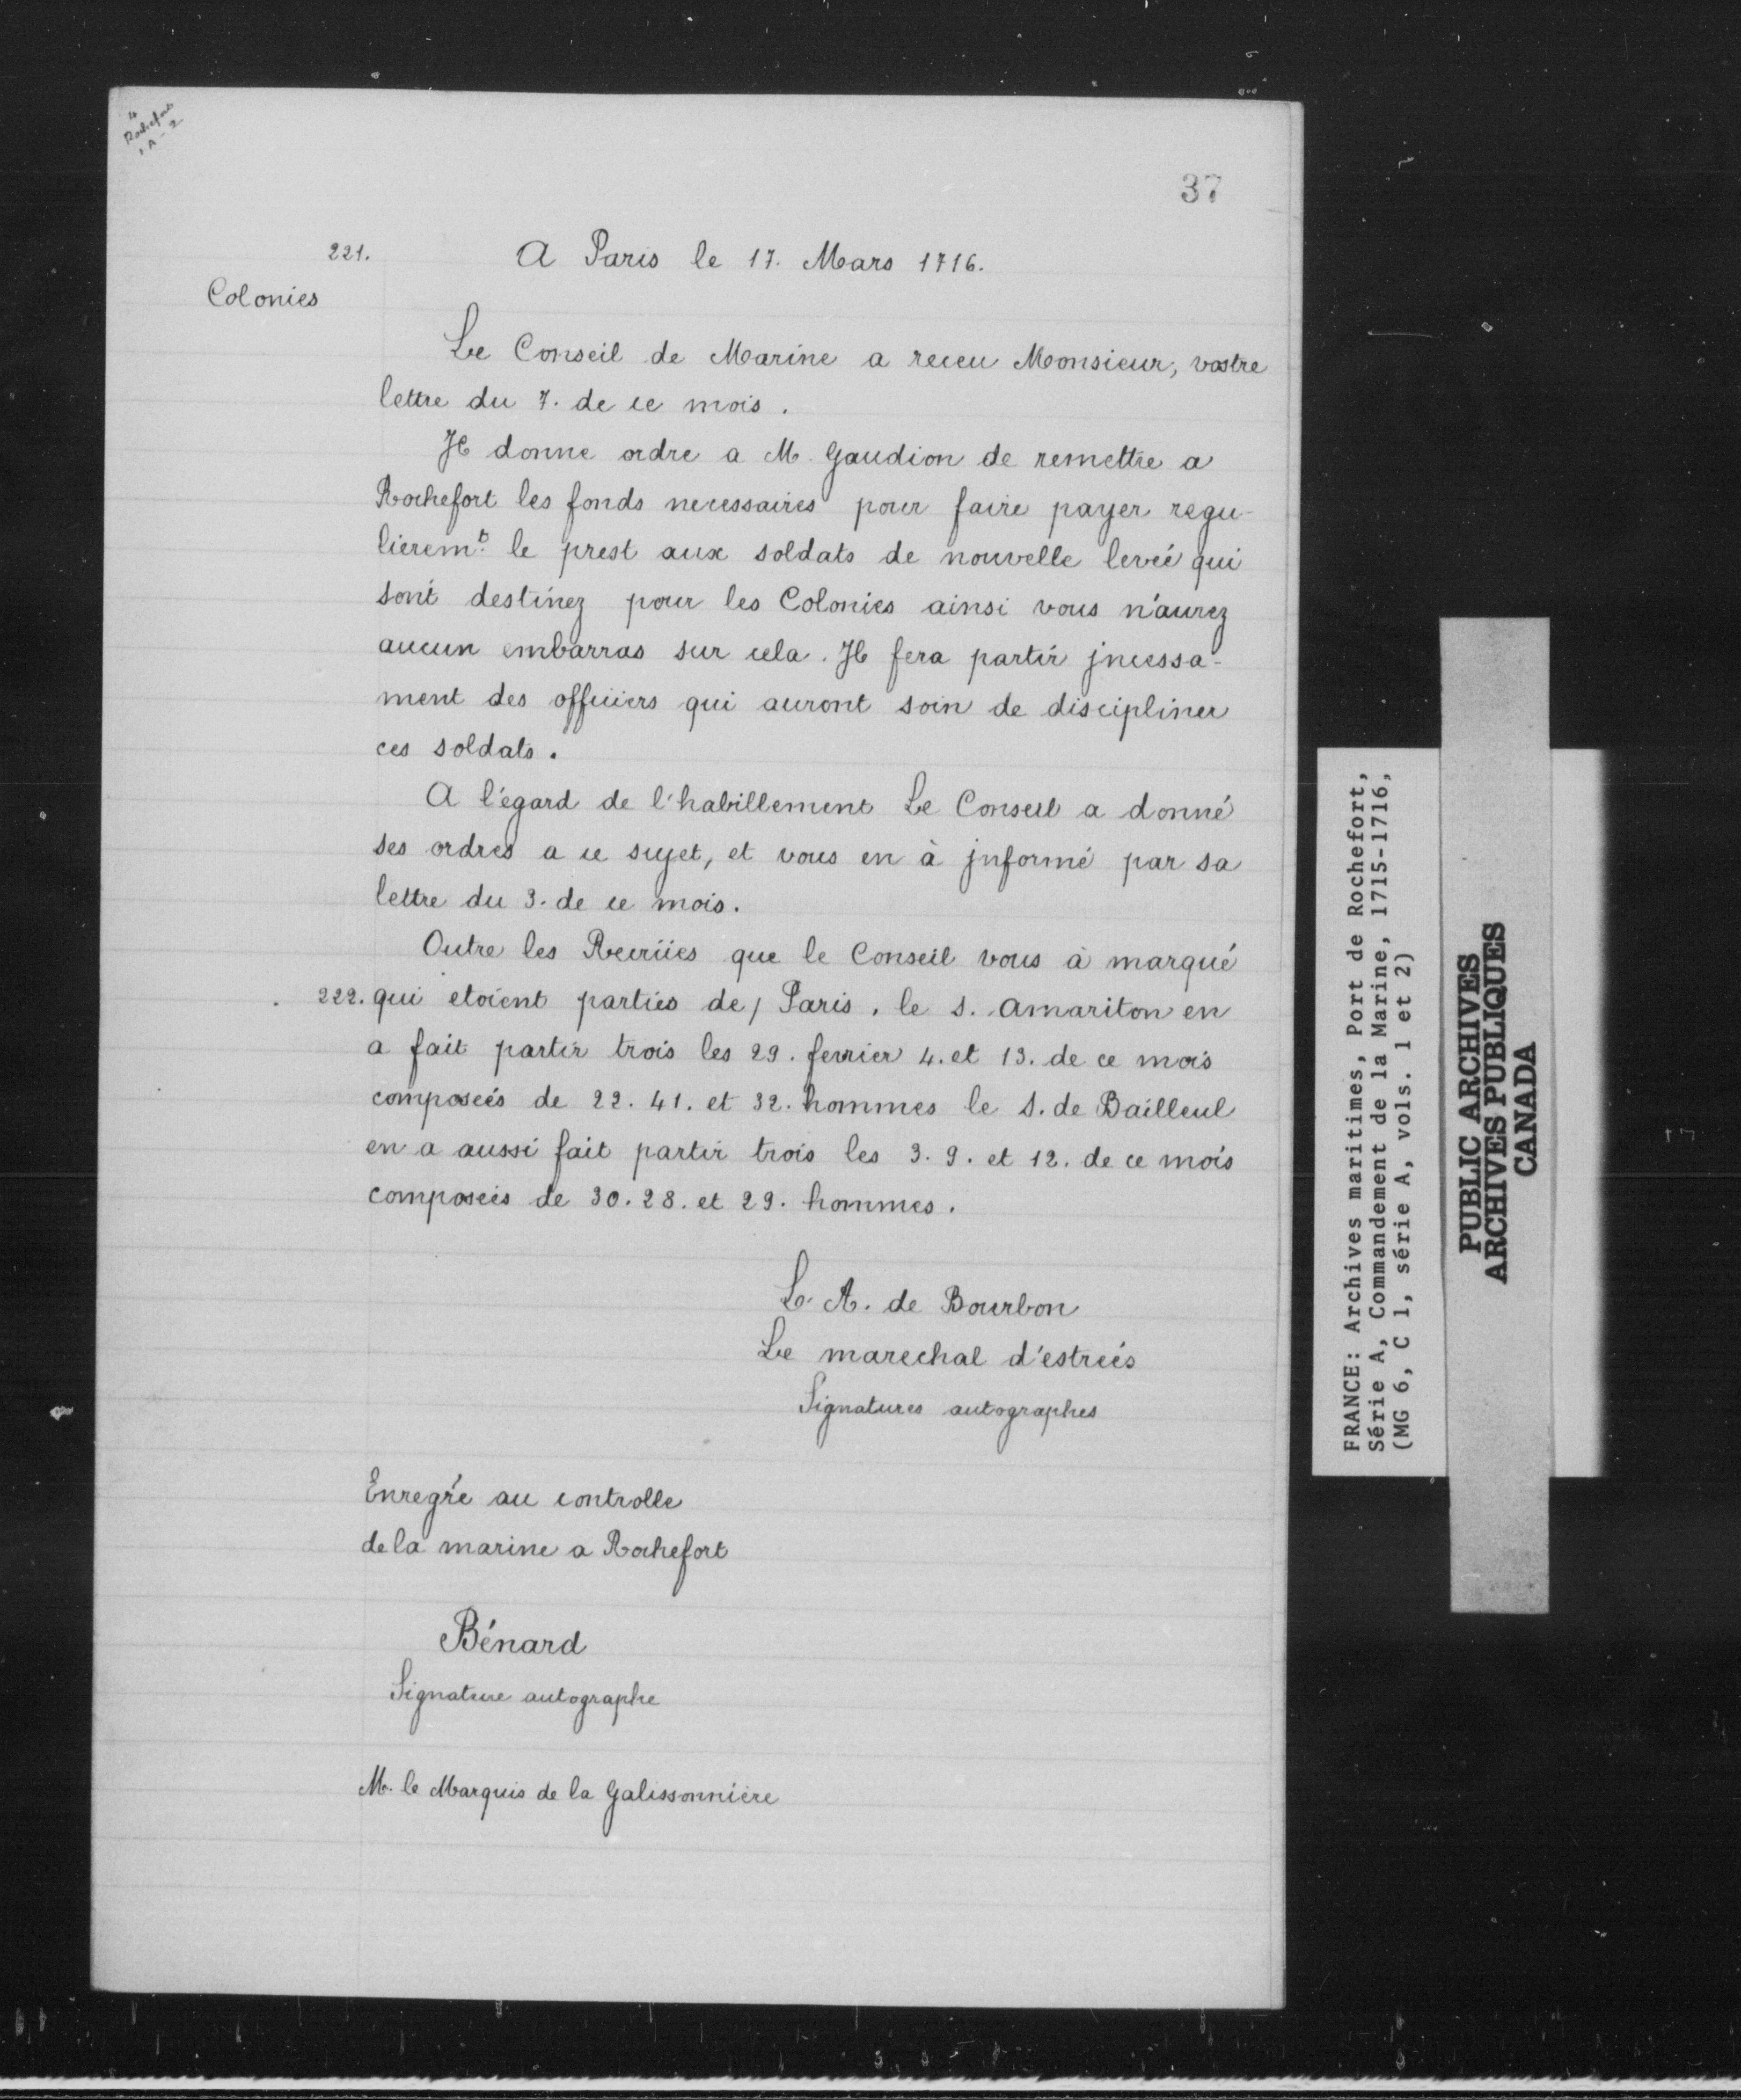 Rochefort
1 A - 2
37
221.
A Paris le 17. Mars 1716.
Colonies
Le Conseil de Marine a receu Monsieur, vostre
lettre du 7. de ce mois.
Il donne ordre a M. Gaudion de remettre a
Rochefort les fonds necessaires pour faire payer regu-
lierem.t le prest aux soldats de nouvelle levée qui
sont destinez pour les Colonies ainsi vous n'aurez
aucun embarras sur cela. Il fera partir jncessa-
ment des officiers qui auront soin de discipliner
ces soldats.
A l'égard de l'habillement Le Conseil a donné
ses ordres a ce sujet, et vous en à jnformé par sa
lettre du 3. de ce mois.
Outre les Recrües que le Conseil vous à marqué
222. qui etoient parties de / Paris. le s. Amariton en
a fait partir trois les 29. fevrier 4. et 13. de ce mois
composées de 22. 41. et 32. hommes le s. de Bailleul
en a aussi fait partir trois les 3. 9. et 12. de ce mois
composées de 30. 28. et 29. hommes.
L. A. de Bourbon
Le marechal d'estrées
Signatures autographes
Enregré au controlle
de la marine a Rochefort
Bénard
Signature autographe
M. le Marquis de la Galissonnière
FRANCE: Archives maritimes, Port de Rochefort,
Série A, Commandement de la Marine, 1715-1716,
(MG 6, C 1, série A, vols. 1 et 2)
PUBLIC ARCHIVES
ARCHIVES PUBLIQUES
CANADA